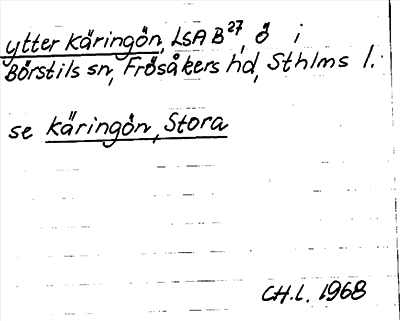 ytter Käringön, LSA B27, ö i
Börstils sn, Frösåkers hd, Sthlms l.
se Käringön, Stora
CH.L. 1968